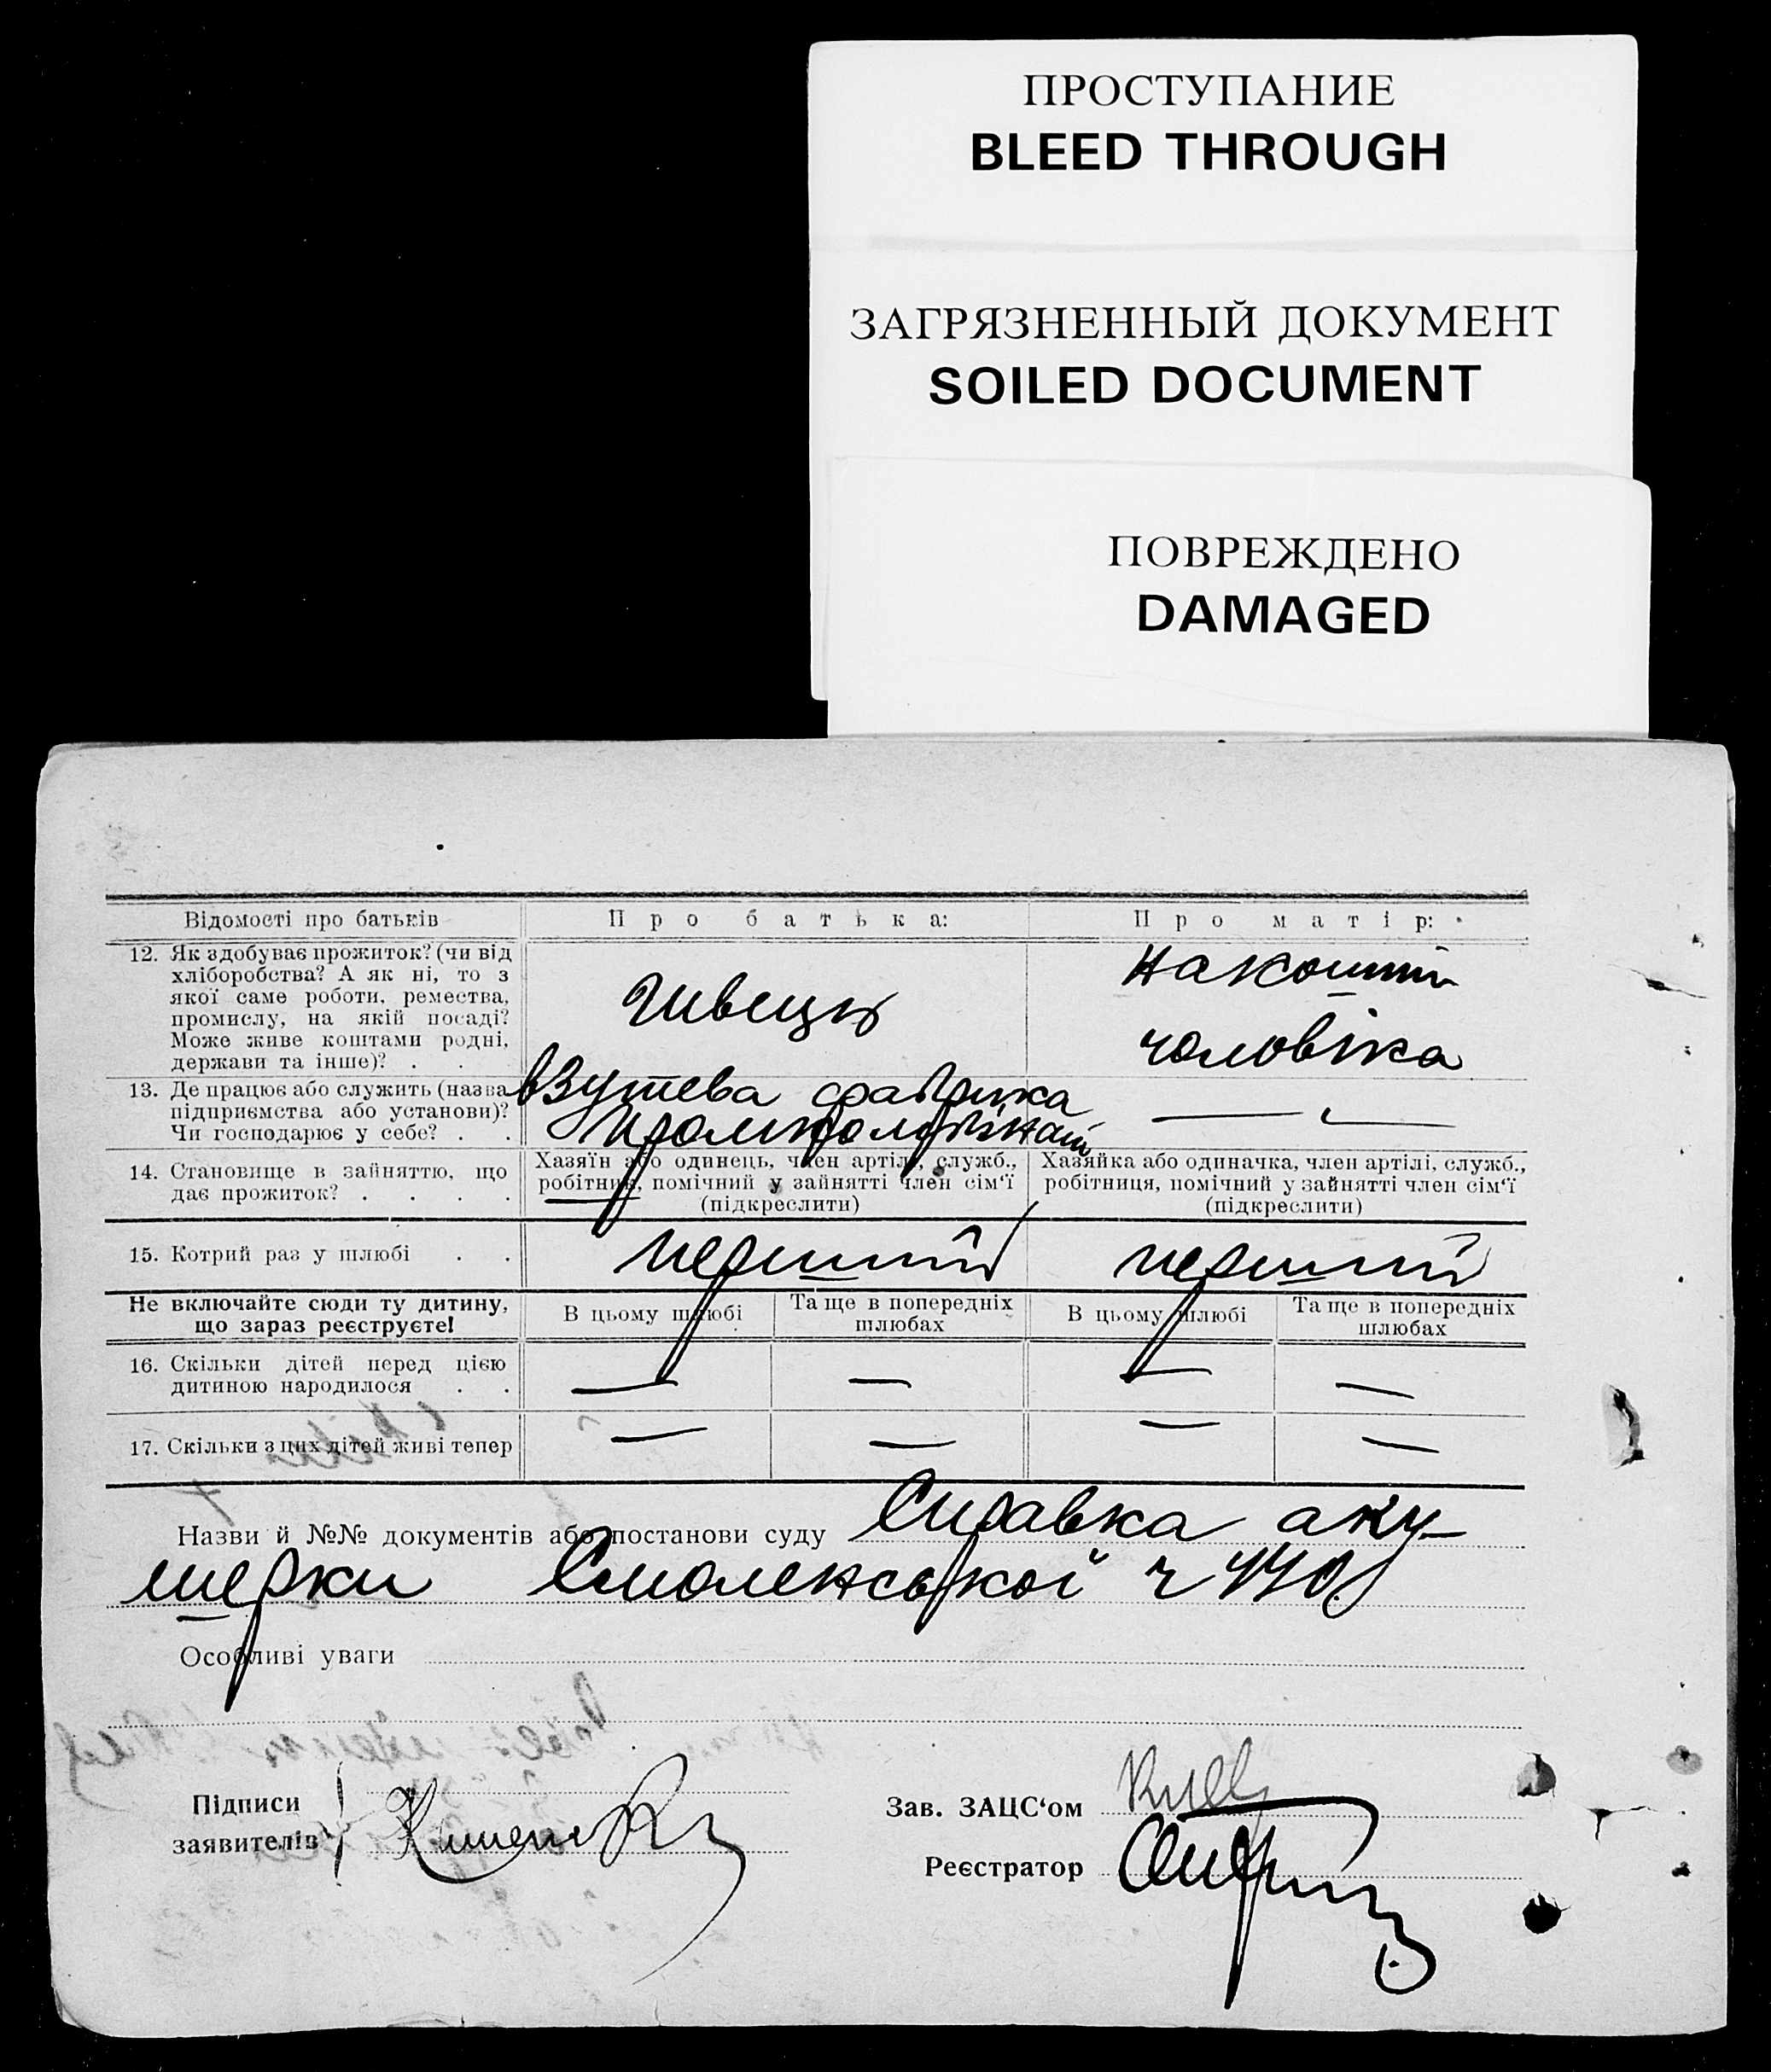 ПРОСТУПАНИЕ
BLEED THROUGH
ЗАГРЯЗНЕННЫЙ ДОКУМЕНТ
SOILED DOCUMENT
ПОВРЕЖДЕНО
DAMAGED
Відомості про батьків
Про батька:
Про матір:
12. Як здобуває прожиток? (чи від
хліборобства? А як ні, то з
якої саме роботи, ремества,
промислу, на якій посаді?
Може живе коштами родні,
держави та інше)? . .
Швець
на кошти
чоловіка
13. Де працює або служить (назва
підприємства або установи)?
Чи господарює у себе? . .
взутева фабрика
—
14. Становище в зайняттю, що
дає прожиток? . . . .
Хазяїн або одинець, член артілі, служб.,
робітник, помічний у зайнятті член сім'ї
(підкреслити)
Хазяйка або одиначка, член артілі, служб.,
робітниця, помічний у зайнятті член сім'ї
(підкреслити)
15. Котрий раз у шлюбі . .
перший
перший
Не включайте сюди ту дитину,
що зараз реєструєте!
В цьому шлюбі
Та ще в попередніх
шлюбах
В цьому шлюбі
Та ще в попередніх
шлюбах
16. Скільки дітей перед цією
дитиною народилося . .
— — — —
17. Скільки з цих дітей живі тепер
— — — —
Назви й №№ документів або постанови суду Справка аку-
шерки Смоленської ч 440
Особливі уваги
Підписи
заявителів
Зав. ЗАЦС'ом
Реєстратор